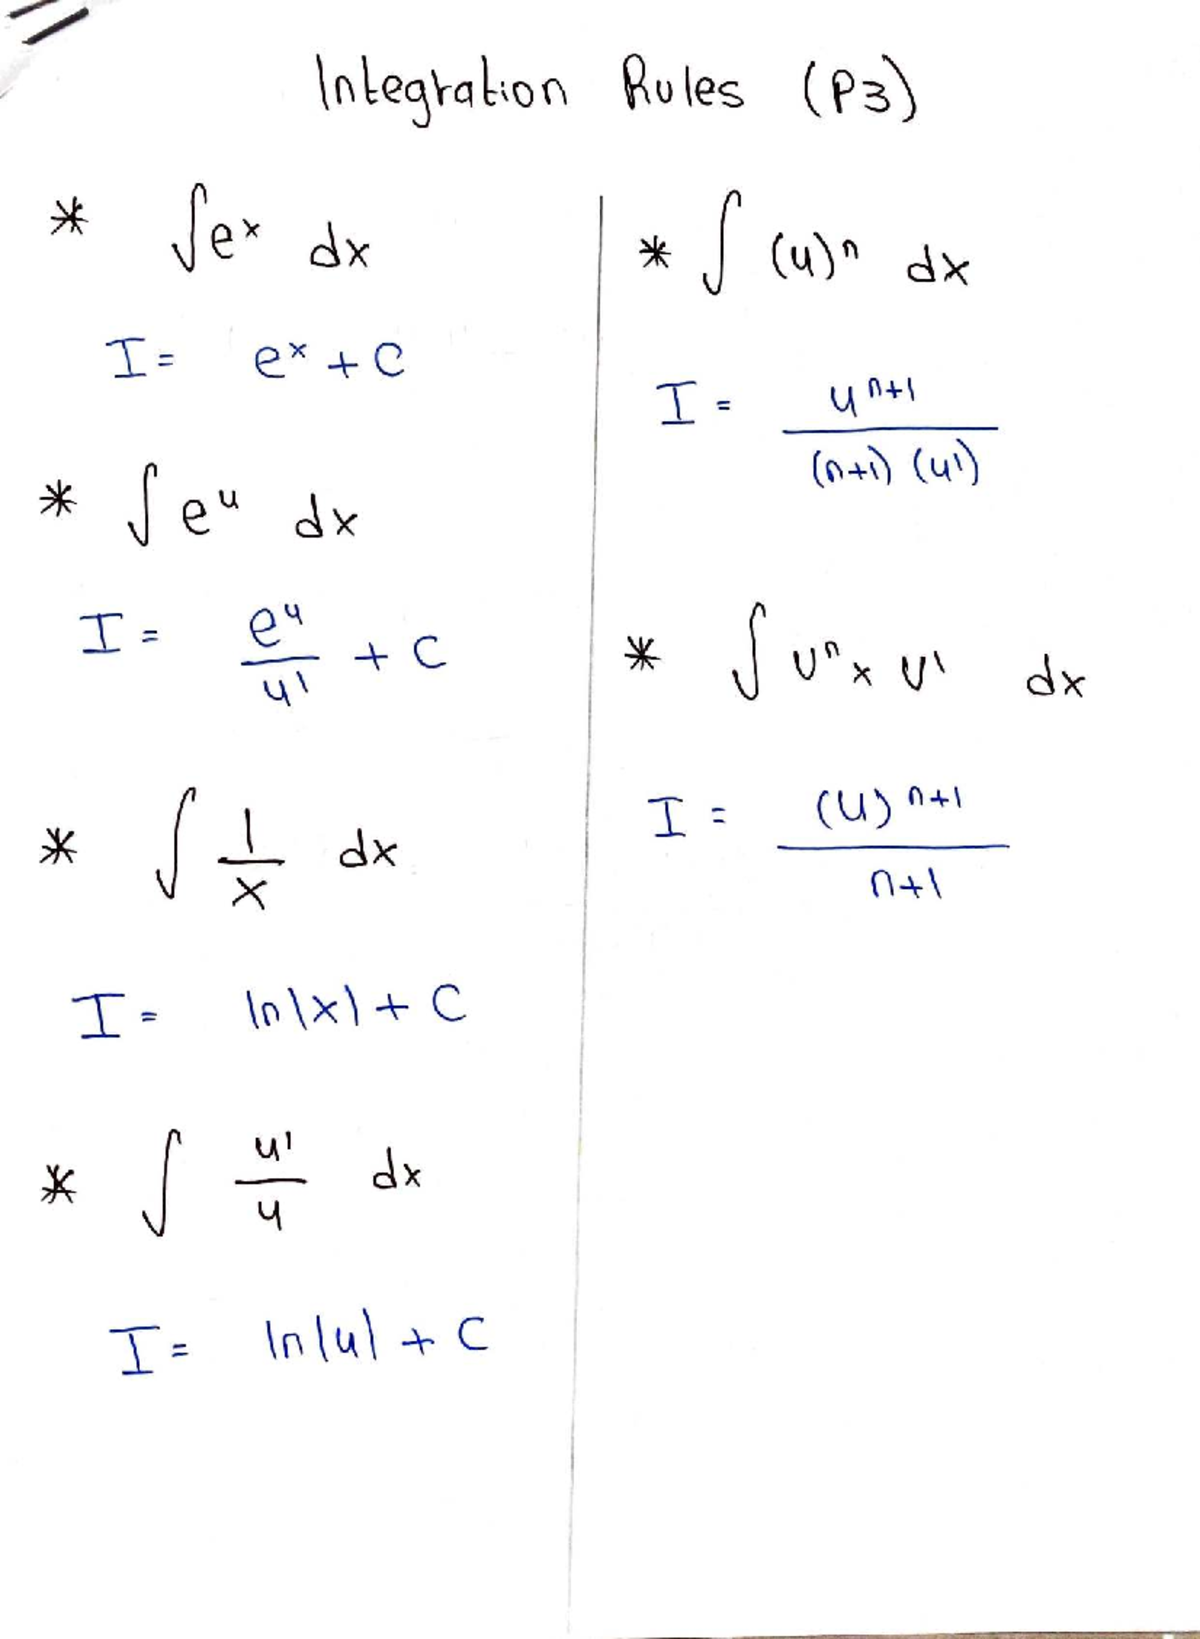 Integration Rules (P3)
* ∫e^x dx
I = e^x + C
* ∫ e^u dx
I = e^u / u' + C
* ∫ 1/x dx
I = ln|x| + C
* ∫ u'/u dx
I = ln|u| + C
* ∫ (u)^n dx
I = u^(n+1) / (n+1) (u')
* ∫ U^n × U' dx
I = (U)^(n+1) / n+1